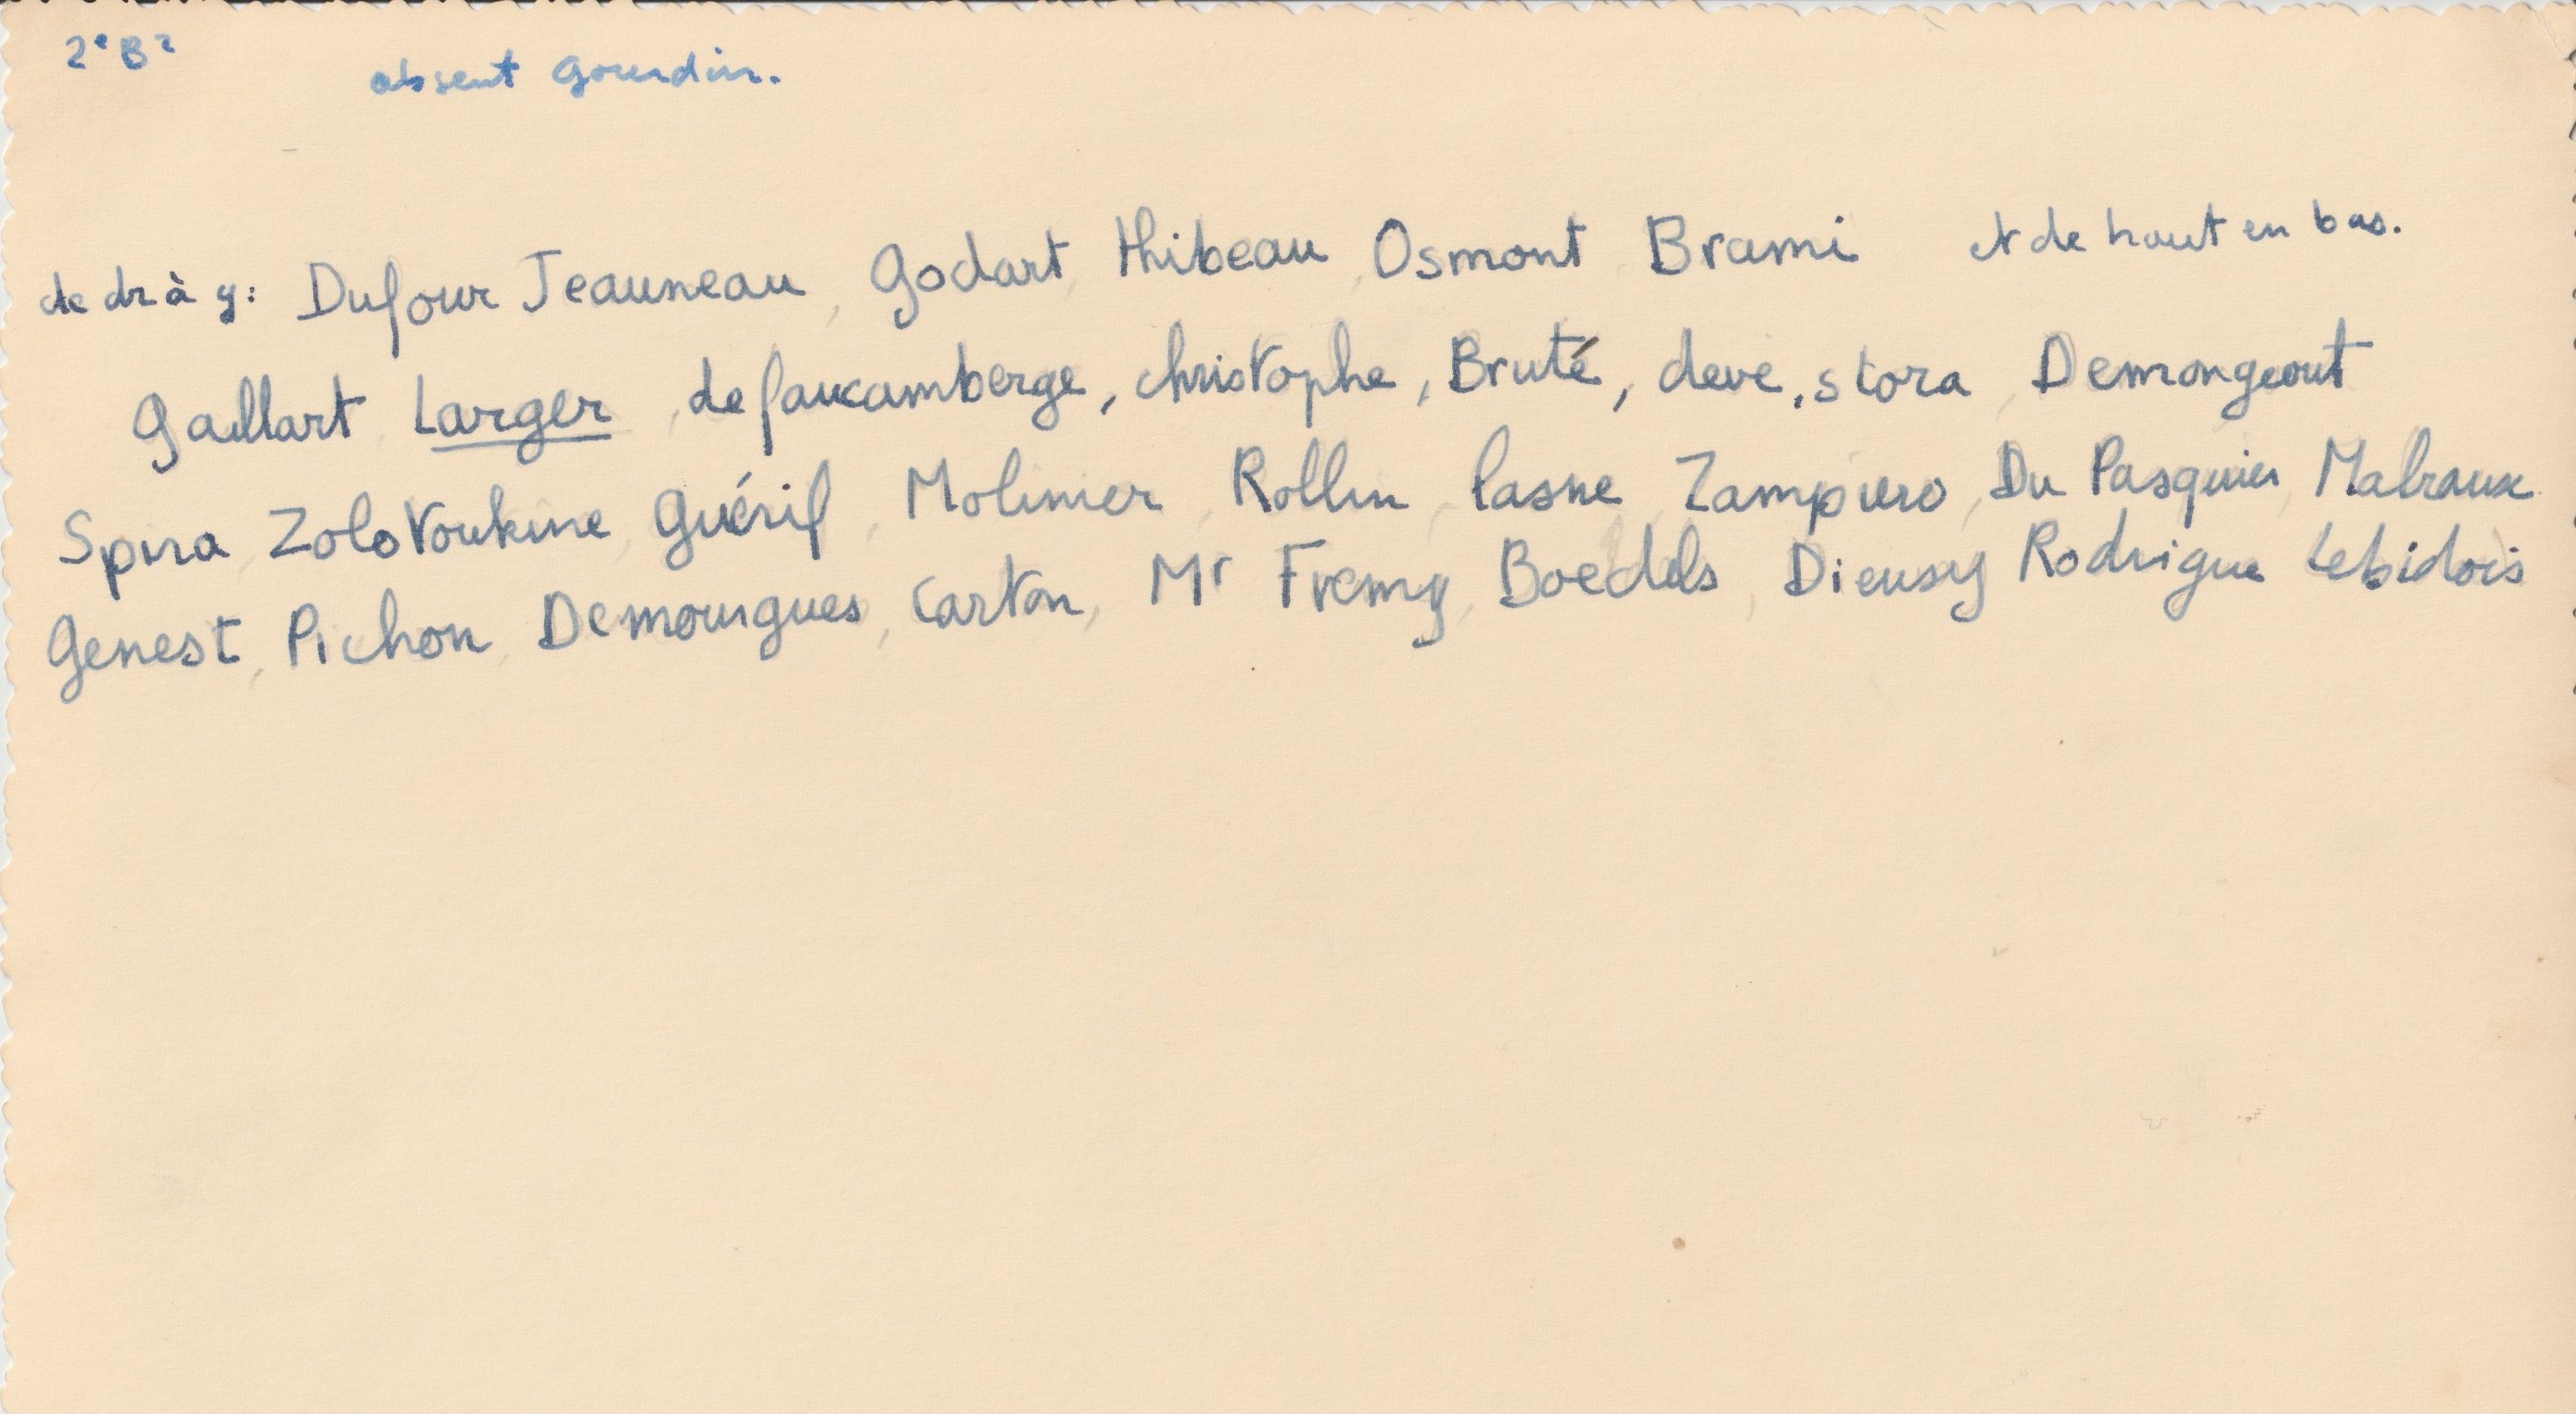 2e B2
absent Gourdin.
de dr à g: Dufour Jeauneau, Godart, thibeau, Osmont Brami et de haut en bas.
Gaillart, Larger, defaucamberge, christophe, Bruté, deve, stora, Demongeout
Spira, Zolotoukine, Guérif, Molinier, Rollin, lasne, Zampiero, Du Pasquier, Malraux
Genest, Pichon, Demourgues, Carton, Mr Fremy, Boedels, Dieusy Rodrigue Lebidois